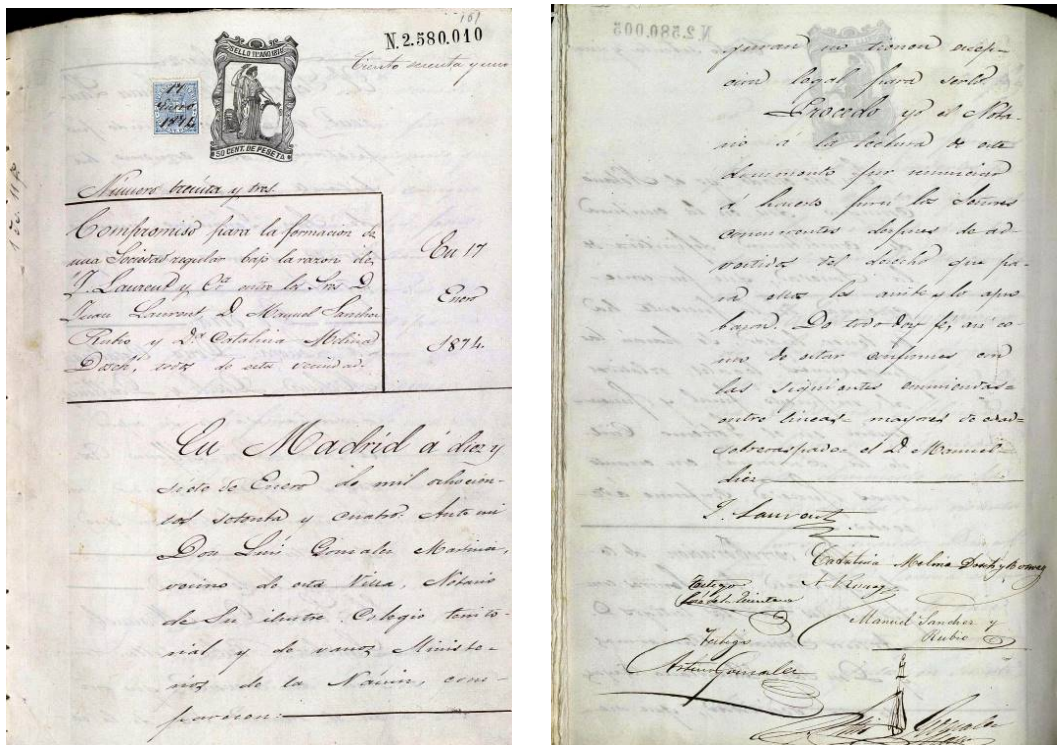 161
N.2.580.010
Ciento sesenta y uno
SELLO 11º AÑO 1874
50 CENT. DE PESETA
17
Enero
1874
Numero treinta y tres.
Compromiso para la formacion de
una Sociedad regular bajo la razon de
J. Laurent y Cª entre los Sres D.
Juan Laurent, D. Manuel Sanchez
Rubio y Dª Catalina Melina
Dosch, todos de esta vecindad.
En 17
Enero
1874.
En Madrid á diez y
siete de Enero de mil ochocien-
tos setenta y cuatro. Ante mi
Don Luis Gonzalez Martinez,
vecino de esta Villa, Notario
de su ilustre Colegio territo-
rial y de varios Ministe-
rios de la Nación, com-
parecen:
N.2.580.005
juran no tienen excep-
cion legal para serlo
Procedo yo el Nota-
rio á la lectura de este
documento por renunciar
á hacerlo por si los Señores
comparecientes despues de ad-
vertidos del derecho que pa-
ra ello les asiste y lo aprue-
ban. De todo doy fe, asi co-
mo de estar conformes con
las siguientes enmiendas=
entre lineas= mayores de edad=
sobreraspado= el D. Manuel=
diez
J. Laurent
Catalina Melina Dosch y
A. Roswag
Testigo
Manuel Sanchez y
Rubio
Testigo
Arturo Gonzalez
Luis Gonzalez